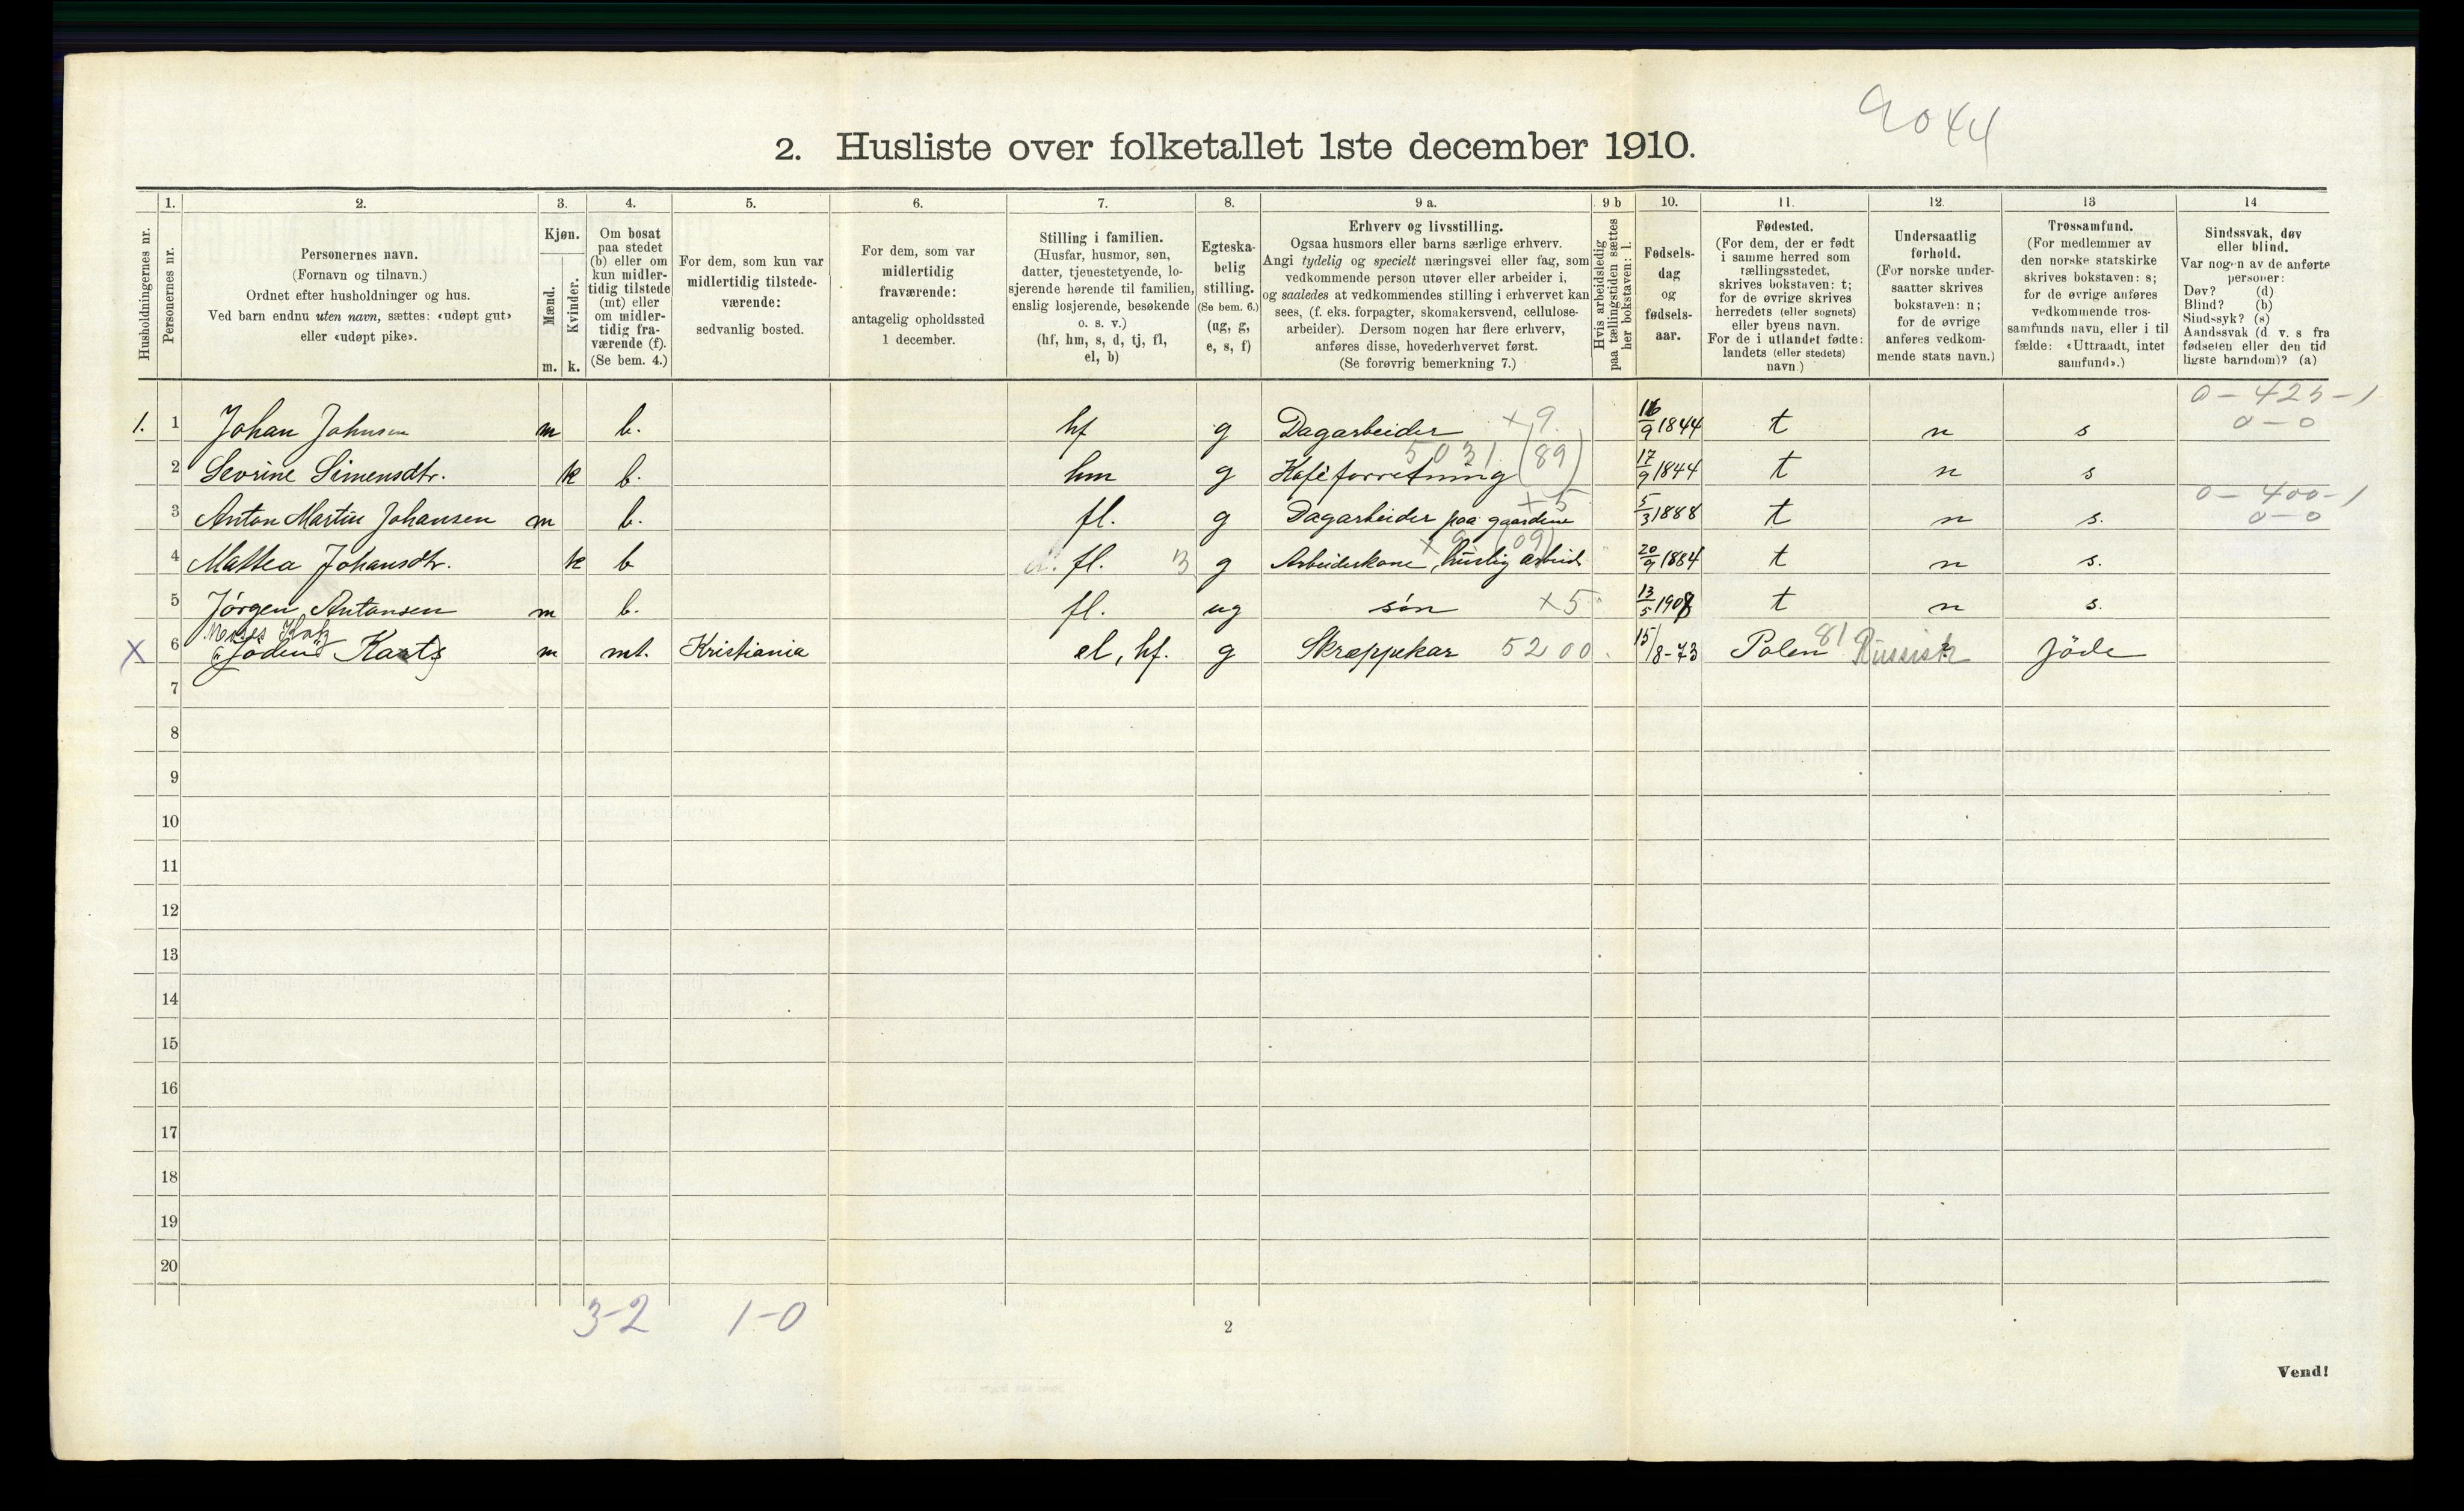 9044
2. Husliste over folketallet 1ste december 1910.
Husholdningernes nr.
1.
Personernes nr.
2.
Personernes navn.
(Fornavn og tilnavn.)
Ordnet efter husholdninger og hus.
Ved barn endnu uten navn, sættes: «udøpt gut»
eller «udøpt pike».
3.
Kjøn.
Mænd.
Kvinder.
m. k.
4.
Om bosat
paa stedet
(b) eller om
kun midler-
tidig tilstede
(mt) eller
om midler-
tidig fra-
værende (f).
(Se bem. 4.)
5.
For dem, som kun var
midlertidig tilstede-
værende:
sedvanlig bosted.
6.
For dem, som var
midlertidig
fraværende:
antagelig opholdssted
1 december.
7.
Stilling i familien.
(Husfar, husmor, søn,
datter, tjenestetyende, lo-
sjerende hørende til familien,
enslig losjerende, besøkende
o. s. v.)
(hf, hm, s, d, tj, fl,
el, b)
8.
Egteska-
belig
stilling.
(Se bem. 6.)
(ug, g,
e, s, f)
9 a.
Erhverv og livsstilling.
Ogsaa husmors eller barns særlige erhverv.
Angi tydelig og specielt næringsvei eller fag, som
vedkommende person utøver eller arbeider i,
og saaledes at vedkommendes stilling i erhvervet kan
sees, (f. eks. forpagter, skomakersvend, cellulose-
arbeider). Dersom nogen har flere erhverv,
anføres disse, hovederhvervet først.
(Se forøvrig bemerkning 7.)
9 b
Hvis arbeidsledig
paa tællingstiden sættes
her bokstaven: l.
10.
Fødsels-
dag
og
fødsels-
aar.
11.
Fødested.
(For dem, der er født
i samme herred som
tællingsstedet,
skrives bokstaven: t;
for de øvrige skrives
herredets (eller sognets)
eller byens navn.
For de i utlandet fødte:
landets (eller stedets)
navn.)
12.
Undersaatlig
forhold.
(For norske under-
saatter skrives
bokstaven: n;
for de øvrige
anføres vedkom-
mende stats navn.)
13
Trossamfund.
(For medlemmer av
den norske statskirke
skrives bokstaven: s;
for de øvrige anføres
vedkommende tros-
samfunds navn, eller i til
fælde: «Uttraadt, intet
samfund».)
14
Sindssvak, døv
eller blind.
Var nogen av de anførte
personer:
Døv? (d)
Blind? (b)
Sindssyk? (s)
Aandssvak (d. v. s fra
fødselen eller den tid
ligste barndom)? (a)
0 - 425 - 1
1. 1 Johan Johnsen m b. hf g Dagarbeider x 9. 16/9 1844 t n s 0 - 0
5031 (89)
2 Sevrine Simensdtr. k b. hm g Kaféforretning 17/9 1844 t n s
x 5 0 - 400 - 1
3 Anton Martin Johansen m b. fl. g Dagarbeider paa gaardene 5/3 1888 t n s. 0 - 0
x 9 (09)
4 Mathea Johansdtr. k b d. fl. 3 g Arbeiderkone, huslig arbeid 20/9 1884 t n s.
5 Jørgen Antonsen m b. fl. ug søn x 5 13/5 1908 t n s.
Moses Katz
X 6 "Jøden" Karts m mt. Kristiania el, hf. g Skræppekar 5200. 15/8-73 Polen 81 Russisk ? Jøde
7
8
9
10
11
12
13
14
15
16
17
18
19
20
3-2 1-0
2
Vend!